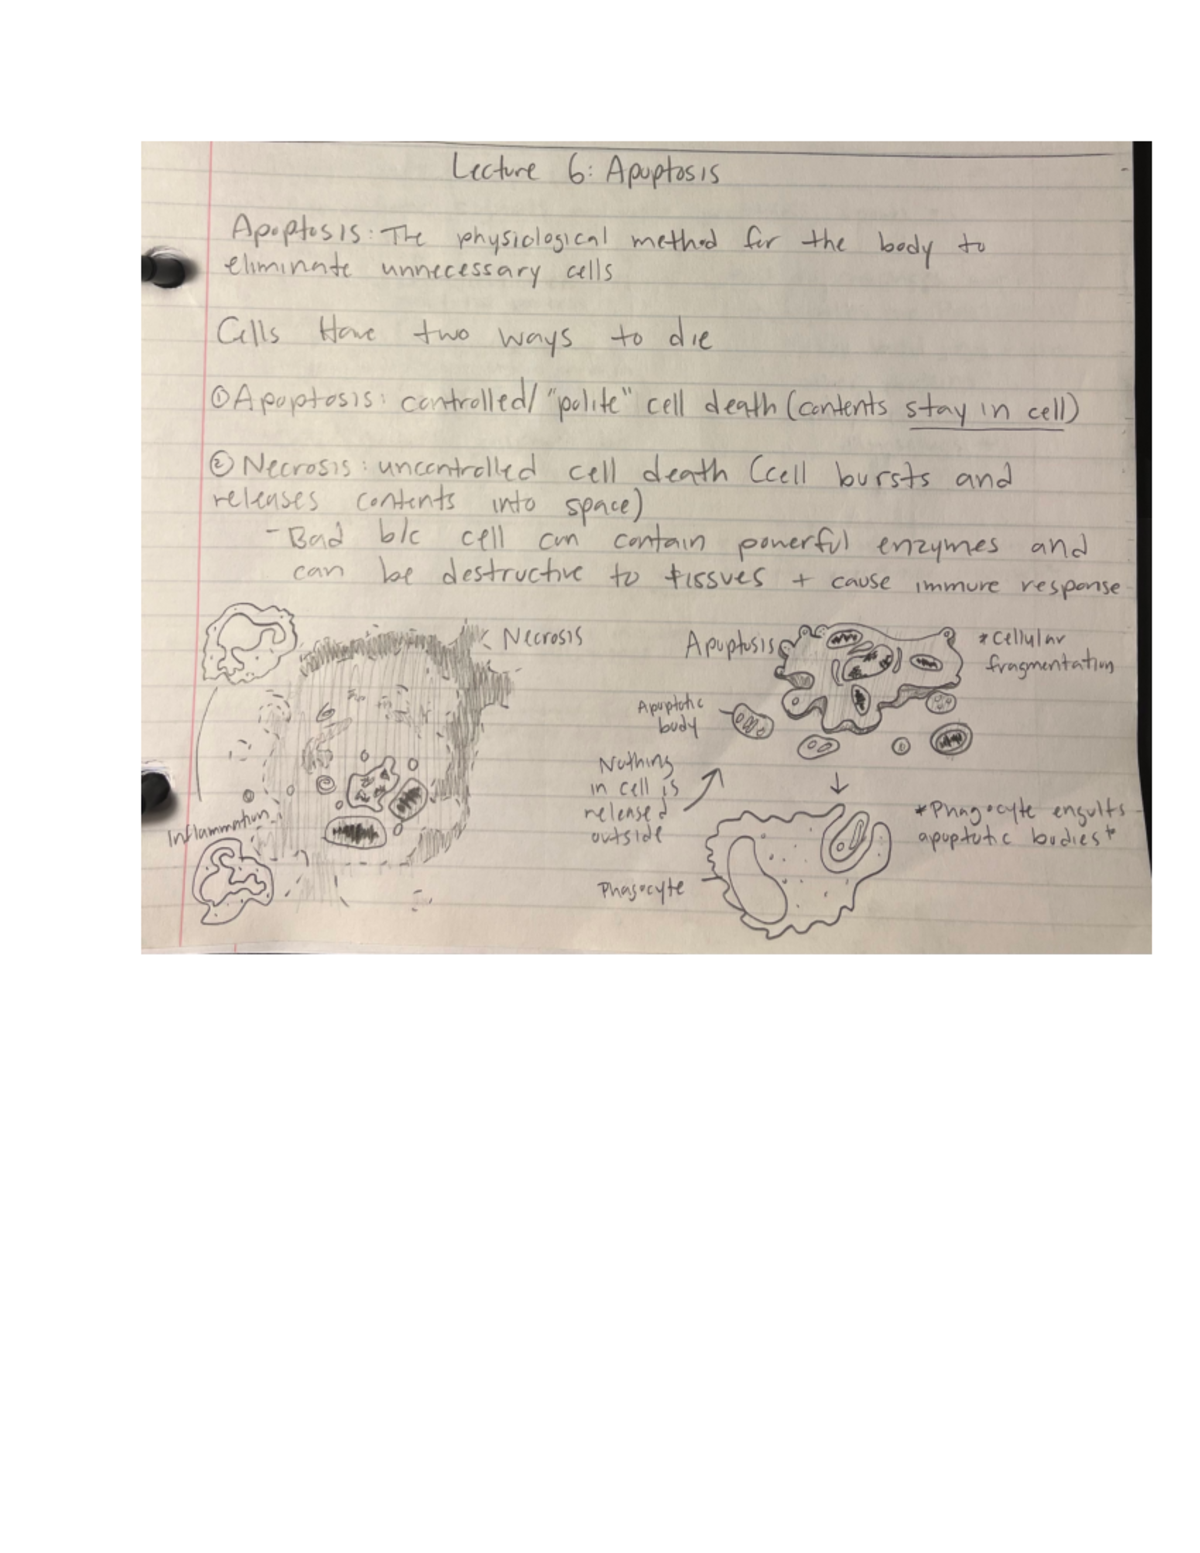 Lecture 6: Apoptosis
Apoptosis: The physiological method for the body to
eliminate unnecessary cells
Cells Have two ways to die
① Apoptosis: controlled/ "polite" cell death (contents stay in cell)
② Necrosis: uncontrolled cell death (cell bursts and
releases contents into space)
- Bad b/c cell can contain powerful enzymes and
can be destructive to tissues + cause immune response
Necrosis
Inflammation
Apoptosis
*Cellular
fragmentation
Apoptotic
body
Nothing
in cell is
released
outside
*Phagocyte engulfs
apoptotic bodies*
Phagocyte